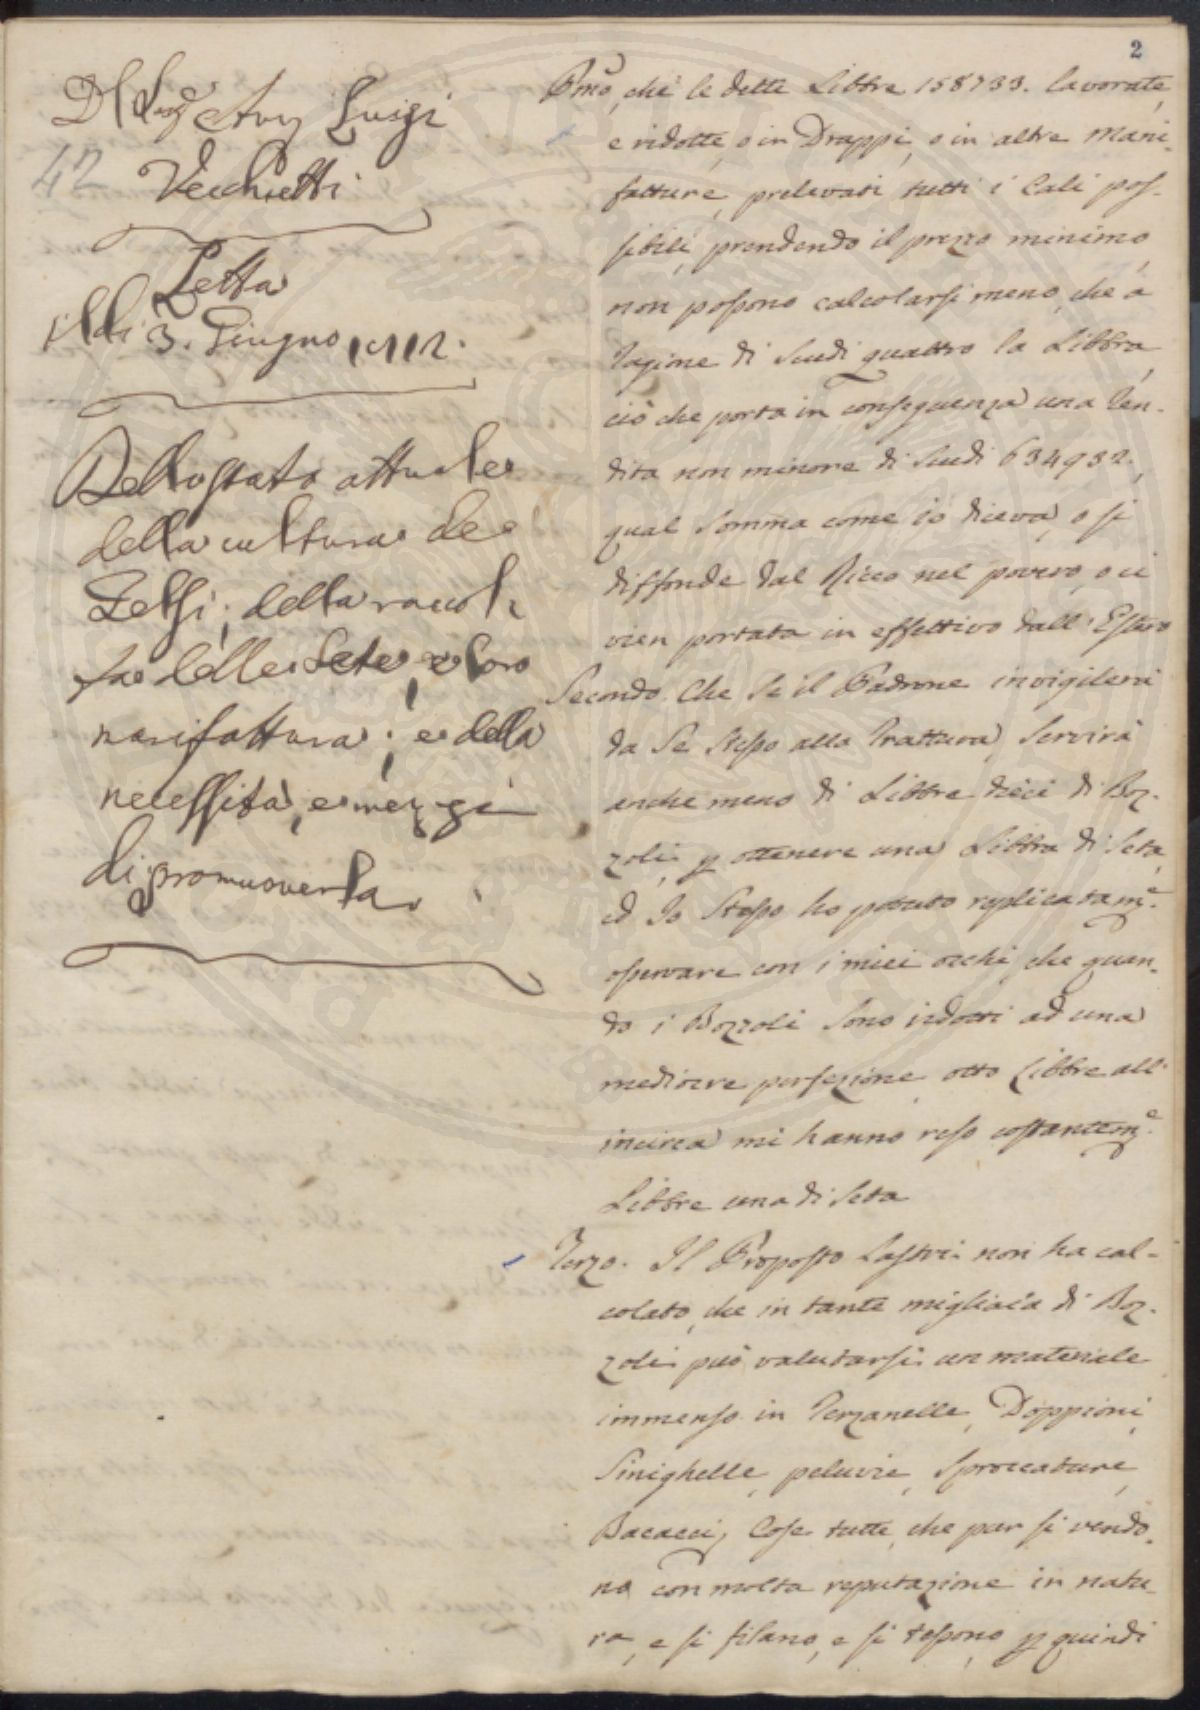 2
Del Sig.e Avv. Luigi
42
Vecchietti
Letta
il dì 3. Giugno
Dello stato attuale
della cultura de
Gelsi; della raccol-
ta delle Sete, e loro
manifattura; e della
necessità, e mezzi
di promuoverla.
Pmo, che le dette Libbre 158733. lavorate,
e ridotte, o in Drappi, o in altre Mani-
fatture, prelevati tutti i Cali pos-
sibili, prendendo il prezzo minimo,
non possono calcolarsi meno, che a
ragione di Scudi quattro la Libbra,
ciò che porta in conseguenza una Ven-
dita non minore di Scudi 634932.,
qual Somma come io diceva, o si
diffonde dal Ricco nel povero, o ci
vien portata in effettivo dall'Estero
Secondo. Che se il Padrone invigilerà
da Se Stesso alla Trattura, Servirà
anche meno di Libbre dieci di Boz-
zoli, p ottenere una Libbra di Seta,
ed Io Stesso ho potuto replicatam.e
osservare con i miei occhi, che quan-
do i Bozzoli Sono ridotti ad una
mediocre perfezione, otto Libbre all'
incirca mi hanno reso costantem.e
Libbre una di Seta
Terzo. Il Proposto Lastri non ha cal-
colato, che in tante migliaia di Boz-
zoli può valutarsi un materiale
immenso in Terzanelle, Doppioni,
Sinighelle, peluvie, Sproccature,
Bacacci, Cose tutte, che pur si vendo-
no con molta reputazione in natu-
ra, e si filano, e si tessono, p quindi